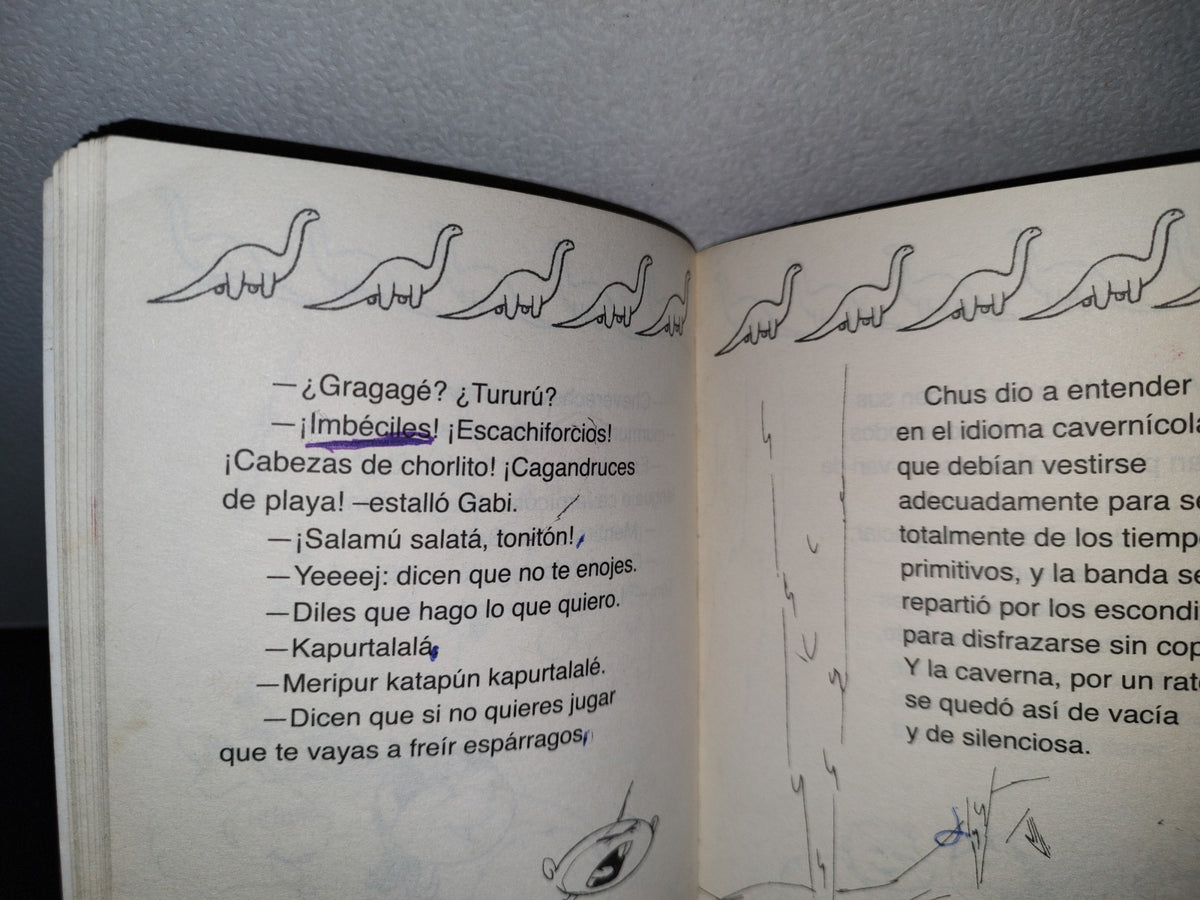 —¿Gragagé? ¿Tururú?
—¡Imbéciles! ¡Escachiforcios!
¡Cabezas de chorlito! ¡Cagandruces
de playa! —estalló Gabi.
—¡Salamú salatá, tonitón!
—Yeeeej: dicen que no te enojes.
—Diles que hago lo que quiero.
—Kapurtalalá.
—Meripur katapún kapurtalalé.
—Dicen que si no quieres jugar
que te vayas a freír espárragos.
Chus dio a entender
en el idioma cavernícola
que debían vestirse
adecuadamente para se
totalmente de los tiemp
primitivos, y la banda se
repartió por los escondi
para disfrazarse sin cop
Y la caverna, por un rat
se quedó así de vacía
y de silenciosa.